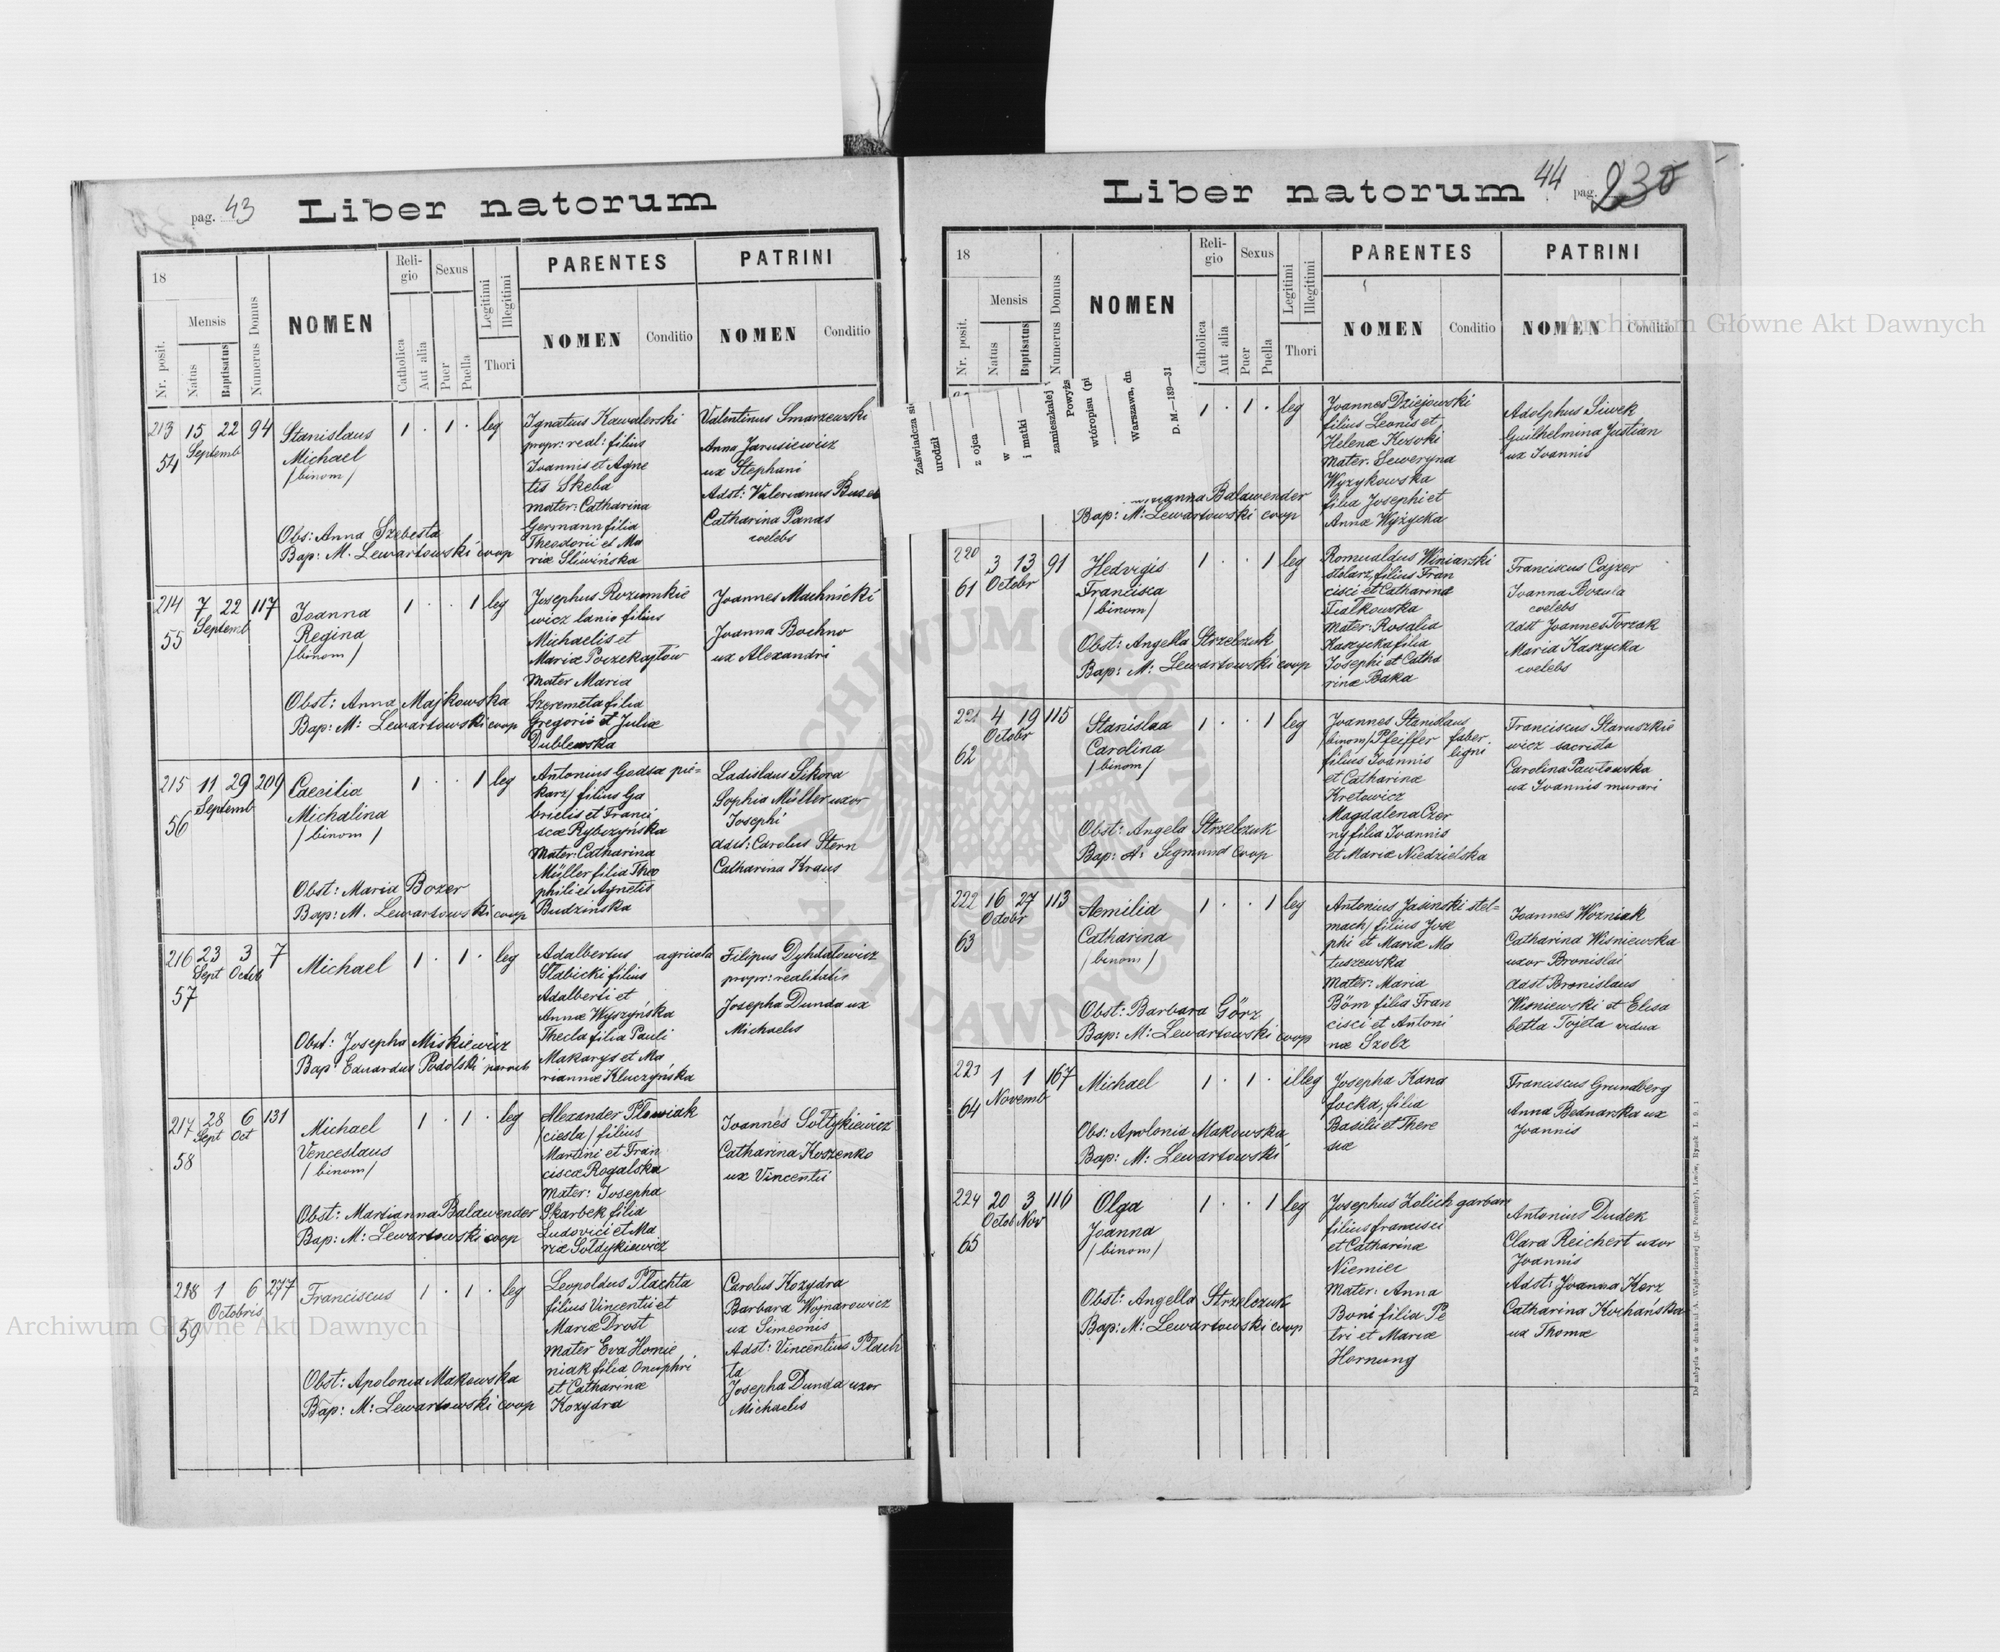 pag. 43
Liber natorum
18
Nr. posit.
Mensis
Natus
Baptisatus
Numerus Domus
NOMEN
Religio
Catholica
Aut alia
Sexus
Puer
Puella
Legitimi
Illegitimi
Thori
PARENTES
NOMEN
Conditio
PATRINI
NOMEN
Conditio
213 15 22 94
54 Septemb
Stanislaus
Michael
/binom/
1 . 1 . leg
Obs: Anna Szebesta
Bap: M. Lewartowski coop
Ignatius Kawalerski
propr: real: filius
Joannis et Agne
tis Skeba
mater: Catharina
Germann filia
Theodorii et Ma
riæ Śliwińska
Valentinus Smarzewski
Anna Jarusiewicz
ux Stephani
Adst: Valerianus
Catharina Panas
coelebs
214 7 22 117
55 Septemb
Joanna
Regina
/binom/
1 . . 1 leg
Obst: Anna Majkowska
Bap: M: Lewartowski coop
Josephus Rozumkie
wicz lanio filius
Michaelis et
Mariæ
Mater Maria
Szeremeta filia
Gregorii et Juliæ
Dublewska
Joannes Machnicki
Joanna Bochno
ux Alexandri
215 11 29 209
56 Septemb
Caecilia
Michalina
/binom/
1 . . 1 leg
Obst: Maria Bozer
Bap: M. Lewartowski coop
Antonius Godsa pie=
karz/ filius Ga
brielis et Franci
scæ Rybczyńska
Mater: Catharina
Müller filia Theo
phili et Agnetis
Budzińska
Ladislaus Sikora
Sophia Müller uxor
Josephi
adst: Carolus Stern
Catharina Kraus
216 23 3 7
57 Sept Octob
Michael
1 . 1 . leg
Obst: Josepha Miskiewicz
Bap: Eduardus Podolski paroch
Adalbertus agricola
Słabicki filius
Adalberti et
Annæ Wyszyńska
Thecla filia Pauli
Makarys et Ma
riannæ Kluczyńska
Filipus Dyhdalewicz
propr: realitatis
Josepha Dunda ux
Michaelis
217 28 6 131
58 Sept Oct
Michael
Venceslaus
/binom/
1 . 1 . leg
Obst: Marianna Balawender
Bap: M: Lewartowski coop
Alexander Płowiak
/ciesla/ filius
Martini et Fran
ciscæ Rogalska
Mater: Josepha
Skarbek filia
Ludovici et Ma
riæ Sołdykiewicz
Joannes Sołtykiewicz
Catharina Koszenko
ux Vincentii
218 1 6 277
59 Octobris
Franciscus
1 . 1 . leg
Obst: Apolonia Makowska
Bap: M: Lewartowski coop
Leopoldus Płachta
filius Vincentii et
Mariæ Drost
mater Eva Homie
niak filia Onuphri
et Catharinæ
Kozydra
Carolus Kozydra
Barbara Wojnarowicz
ux Simeonis
Adst: Vincentius Płach
ta
Josepha Dunda uxor
Michaelis
Liber natorum 44 pag. 230
18
Nr. posit.
Mensis
Natus
Baptisatus
Numerus Domus
NOMEN
Religio
Catholica
Aut alia
Sexus
Puer
Puella
Legitimi
Illegitimi
Thori
PARENTES
NOMEN
Conditio
PATRINI
NOMEN
Conditio
Zaświadcza się
urodził
z ojca
w
i matki
zamieszkałej
Powyż
wtóropisu (pi
Warszawa, dn
D. M.—139—31
1 . 1 . leg
Balawender
Bap: M: Lewartowski coop
Joannes Dziejowski
filius Leonis et
Helenæ
Mater. Seweryna
Wyzykowska
filia Josephi et
Annæ Wyżycka
Adolphus Siwek
Guilhelmina Justian
ux Joannis
220 3 13 91
61 Octobr
Hedvigis
Francisca
/binom/
1 . . 1 leg
Obst: Angella Strzelczuk
Bap: M: Lewartowski coop
Romualdus Winiarski
stolarz, filius Fran
cisci et Catharina
Fiałkowska
Mater: Rosalia
Kaszycka filia
Josephi et Catha
rinæ Baka
Franciscus Cajzer
Joanna Bozula
coelebs
adst Joannes Torzak
Maria Kaszycka
coelebs
221 4 19 115
62 Octobr
Stanislaa
Carolina
/binom/
1 . . 1 leg
Obst: Angela Strzelczuk
Bap: A: Sigmund coop
Joannes Stanislaus
/binom/ Pfeiffer faber
filius Joannis ligni
et Catharinæ
Kretowicz
Magdalena Czer
ny filia Joannis
et Mariæ Niedzielska
Franciscus Staruszkie
wicz sacrista
Carolina Pawłowska
ux Joannis murari
222 16 27 113
63 Octobr
Aemilia
Catharina
/binom/
1 . . 1 leg
Obst: Barbara Görz
Bap: M: Lewartowski coop
Antonius Jasinski stel=
mach/ filius Jose
phi et Mariæ Ma
tuszewska
Mater: Maria
Böm filia Fran
cisci et Antoni
næ Szolz
Joannes Wozniak
Catharina Wisniewska
uxor Bronislai
adst Bronislaus
Wisniewski et Elisa
betta Tojeta vidua
223 1 1 167
64 Novemb
Michael
1 . 1 . illeg
Obs: Apolonia Makowska
Bap: M: Lewartowski
Josepha Kana
focka, filia
Basilii et There
siæ
Franciscus Grundberg
Anna Bednarska ux
Joannis
224 20 3 116
65 Octob Nov
Olga
Joanna
/binom/
1 . . 1 leg
Obst: Angella Strzelczuk
Bap: M: Lewartowski coop
Josephus Zelich garbarz
filius francisci
et Catharinæ
Niemiec
Mater: Anna
Boni filia Pe
tri et Mariæ
Hornung
Antonius Dudek
Clara Reichert uxor
Joannis
Adst: Joanna Kerz
Catharina Kochańska
ux Thomæ
Archiwum Główne Akt Dawnych
Archiwum Główne Akt Dawnych
ARCHIWUM GŁÓWNE AKT DAWNYCH